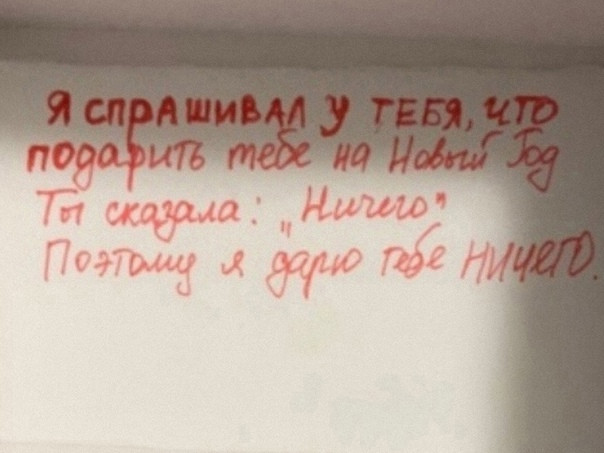 Я СПРАШИВАЛ У ТЕБЯ, ЧТО
подарить тебе на Новый Год
Ты сказала: „Ничего”
Поэтому я дарю тебе НИЧЕГО.